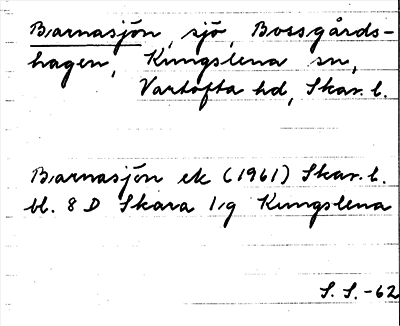 Barnasjön, sjö, Bossgårds-
hagen, Kungslena sn,
Vartofta hd, Skar. l.
Barnasjön ek (1961) Skar. l.
bl. 8 D Skara 1,g Kungslena
S. S. -62